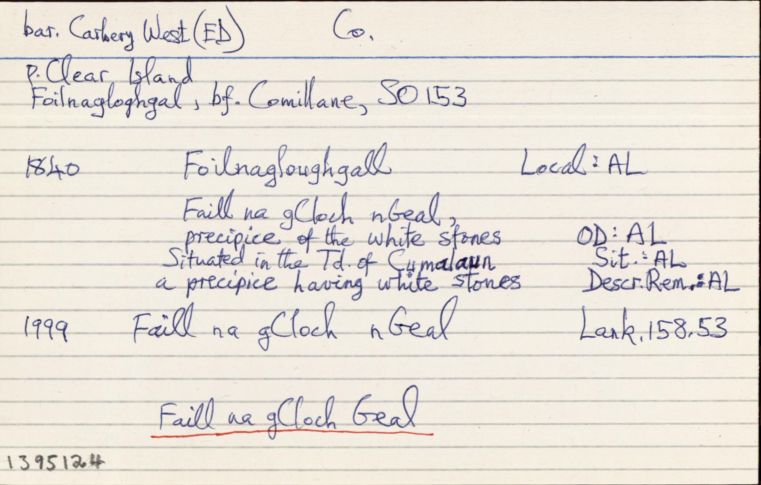 bar. Carbery West (ED) Co.
p. Clear Island
Foilnagloghgal, bf. Comillane, SO 153
1840 Foilnagloughgall Local: AL
Faill na gCloch nGeal,
precipice of the white stones OD: AL
Situated in the Td. of Cumalaun Sit.: AL
a precipice having white stones Descr. Rem.: AL
1999 Faill na gCloch nGeal Lank. 158.53
Faill na gCloch Geal
1395124